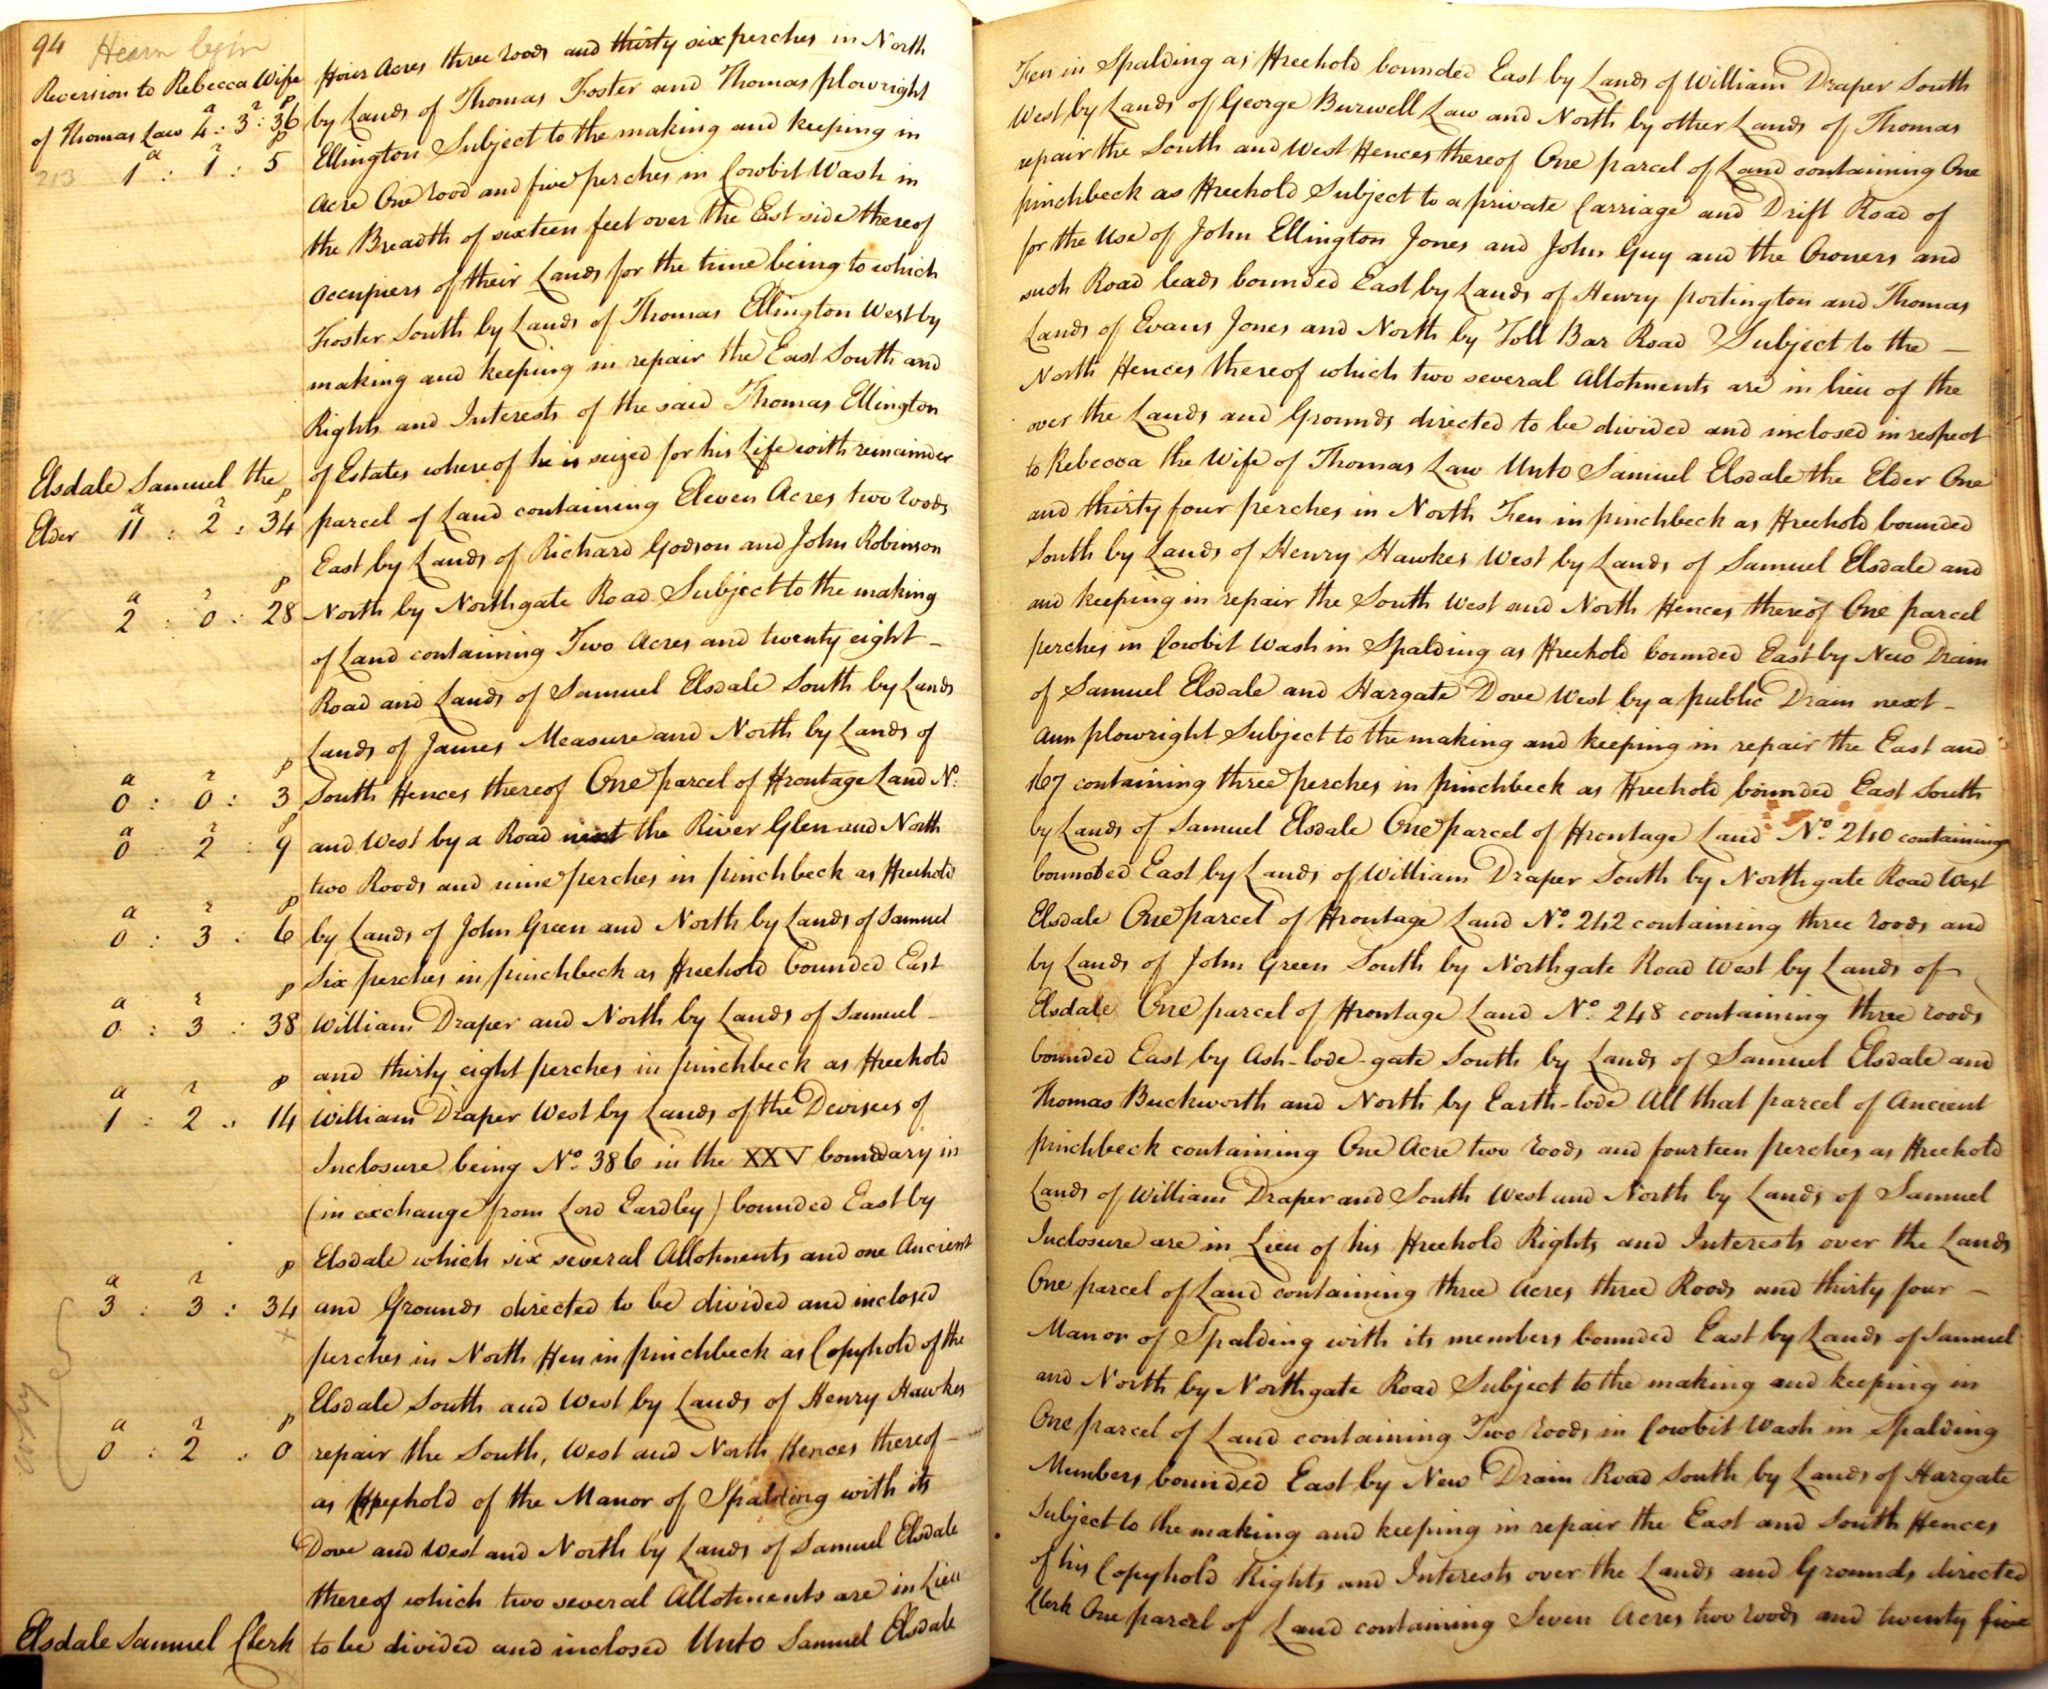 94 Hearn begin
Reversion to Rebecca Wife
of Thomas Law 4a : 3r : 36p
213 1a : 1r : 5p
Four Acres three roods and thirty six perches in North Fen in Spalding as Freehold bounded East by Lands of William Draper South
by Lands of Thomas Foster and Thomas plowright West by Lands of George Burwell Law and North by other Lands of Thomas
Ellington Subject to the making and keeping in repair the South and West Fences thereof One parcel of Land containing One
Acre One rood and five perches in Cowbit Wash in pinchbeck as Freehold Subject to a private Carriage and Drift Road of
the Breadth of sixteen feet over the East side thereof for the Use of John Ellington Jones and John Guy and the Owners and
Occupiers of their Lands for the time being to which such Road leads bounded East by Lands of Henry portington and Thomas
Foster South by Lands of Thomas Ellington West by Lands of Evans Jones and North by Toll Bar Road Subject to the –
making and keeping in repair the East South and North Fences thereof which two several Allotments are in lieu of the
Rights and Interests of the said Thomas Ellington over the Lands and Grounds directed to be divided and inclosed in respect
of Estates whereof he is seized for his Life with remainder to Rebecca the Wife of Thomas Law Unto Samuel Elsdale the Elder One
Elsdale Samuel the
Elder 11a : 2r : 34p
parcel of Land containing Eleven Acres two roods and thirty four perches in North Fen in pinchbeck as Freehold bounded
East by Lands of Richard Godson and John Robinson South by Lands of Henry Hawkes West by Lands of Samuel Elsdale and
2a : 0r : 28p
North by Northgate Road Subject to the making and keeping in repair the South West and North Fences thereof One parcel
of Land containing Two Acres and twenty eight – perches in Cowbit Wash in Spalding as Freehold bounded East by New Drain
Road and Lands of Samuel Elsdale South by Lands of Samuel Elsdale and Hargate Dove West by a public Drain next –
Lands of James Measure and North by Lands of Ann plowright Subject to the making and keeping in repair the East and
0a : 0r : 3p
South Fences thereof One parcel of Frontage Land No. 167 containing three perches in pinchbeck as Freehold bounded East South
0a : 2r : 9p
and West by a Road next the River Glen and North by Lands of Samuel Elsdale One parcel of Frontage Land No. 240 containing
two Roods and nine perches in pinchbeck as Freehold bounded East by Lands of William Draper South by Northgate Road West
0a : 3r : 6p
by Lands of John Green and North by Lands of Samuel Elsdale One parcel of Frontage Land No. 242 containing three roods and
Six perches in pinchbeck as Freehold bounded East by Lands of John Green South by Northgate Road West by Lands of
0a : 3r : 38p
William Draper and North by Lands of Samuel – Elsdale One parcel of Frontage Land No. 248 containing three roods
and thirty eight perches in pinchbeck as Freehold bounded East by Ash-lode-gate South by Lands of Samuel Elsdale and
1a : 2r : 14p
William Draper West by Lands of the Devisees of Thomas Buckworth and North by Earth-lode All that parcel of Ancient
Inclosure being No. 386 in the XXV boundary in pinchbeck containing One Acre two roods and fourteen perches as Freehold
(in exchange from Lord Eardley) bounded East by Lands of William Draper and South West and North by Lands of Samuel
Elsdale which six several Allotments and one Ancient Inclosure are in Lieu of his Freehold Rights and Interests over the Lands
3a : 3r : 34p
and Grounds directed to be divided and inclosed One parcel of Land containing three Acres three Roods and thirty four –
perches in North Fen in pinchbeck as Copyhold of the Manor of Spalding with its members bounded East by Lands of Samuel
copy
Elsdale South and West by Lands of Henry Hawkes and North by Northgate Road Subject to the making and keeping in
0a : 2r : 0p
repair the South, West and North Fences thereof – One parcel of Land containing Two roods in Cowbit Wash in Spalding
as Copyhold of the Manor of Spalding with its Members bounded East by New Drain Road South by Lands of Hargate
Dove and West and North by Lands of Samuel Elsdale Subject to the making and keeping in repair the East and South Fences
thereof which two several Allotments are in Lieu of his Copyhold Rights and Interests over the Lands and Grounds directed
Elsdale Samuel Clerk
to be divided and inclosed Unto Samuel Elsdale Clerk One parcel of Land containing Seven Acres two roods and twenty five